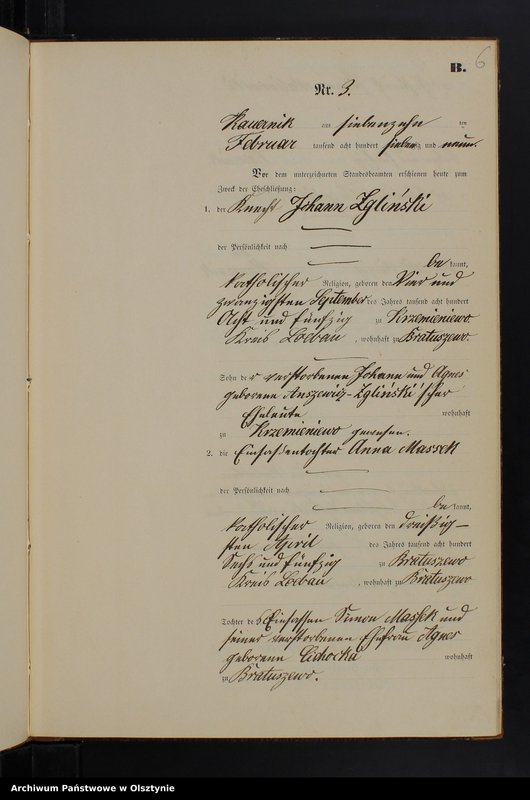 B. 6
Nr. 3.
Kauernik am siebenzehn ten
Februar tausend acht hundert siebenzig und neun.
Vor dem unterzeichneten Standesbeamten erschienen heute zum
Zweck der Eheschließung:
1. der Knecht Johann Zgliński
der Persönlichkeit nach
be kannt,
katholischer Religion, geboren den Vier und
zwanzigsten September des Jahres tausend acht hundert
Acht und fünfzig zu Krzemieniewo
Kreis Loebau, wohnhaft zu Bratuszewo.
Sohn der verstorbenen Johann und Agnes
geborene Anszewicz-Zgliński'scher
Eheleute wohnhaft
zu Krzemieniewo gewesen.
2. die Einsaßentochter Anna Massek
der Persönlichkeit nach
be kannt,
katholischer Religion, geboren den dreißig-
sten April des Jahres tausend acht hundert
Sechs und fünfzig zu Bratuszewo
Kreis Loebau, wohnhaft zu Bratuszewo
Tochter des Einsassen Simon Massek und
seiner verstorbenen Ehefrau Agnes
geborene Cichocka wohnhaft
zu Bratuszewo.
Archiwum Państwowe w Olsztynie